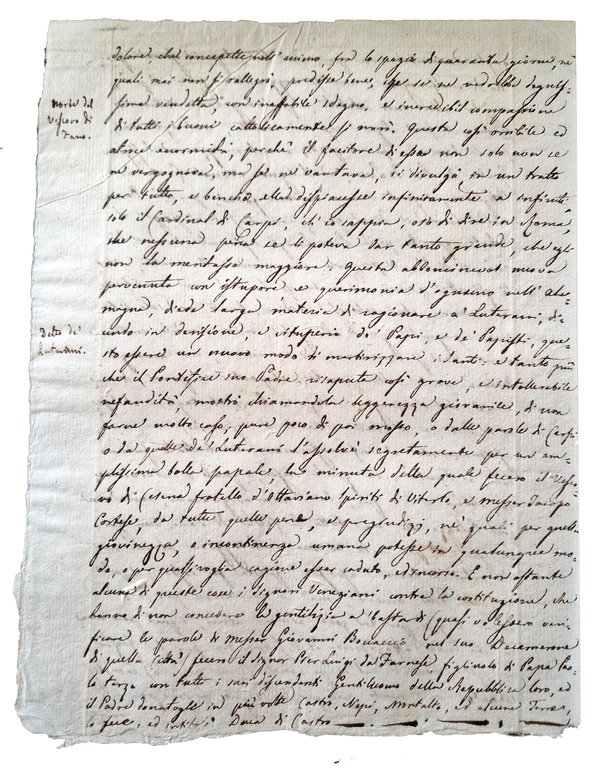 dolore che concepette nell' animo, fra lo spazio di quaranta giorni, ne'
quali mai non si rallegrò, predisse bene, che se ne vedrebbe degnis-
sima vendetta, con ineffabile sdegno, e increscibil compassione
di tutti i buoni cattolicamente si morì. Questa così orribile ed
atroce enormità, perchè il facitore d'essa non solo non se
ne vergognava, ma se ne vantava, si divulgò in un tratto
per tutto, e benchè ella dispiacesse infinitamente a infiniti,
solo il Cardinal di Carpi, ch' io sappia, osò di dire in Roma,
che nessuna pena se li poteva dar tanto grande, che egli
non la meritasse maggiore. Questa abbominevol nuova
pervenuta con istupore e querimonia d'ognuno nell' Ale-
magna, diede larga materia di ragionare a' Luterani, di-
cendo in derisione, e vituperio de' Papi, e de' Papisti, que-
sto essere un nuovo modo di martirizzare i Santi: e tanto più
che il Pontefice suo Padre risaputa così grave, e intollerabile
nefandità, mostrò chiamandola leggerezza giovanile, di non
farne molto caso; pure poco di poi mosso, o dalle parole di Carpi,
o da quelle de' Luterani l'assolvè segretamente per un' am-
plissima bolla papale, la minuta della quale fecero il Vesco-
vo di Cesena fratello d'Ottaviano Spiriti di Viterbo, e Messer Iacopo
Cortese, da tutte quelle pene, e pregiudizj, ne' quali per quest
giovinezza, o incontinenza umana potesse in qualunque mo-
do, o per qualsivoglia cagione esser caduto, ed incorso. E non ostante
alcuna di queste cose i Signori Veneziani contra la costituzione, che
hanno di non concedere la gentilezza a' bastardi (quasi volessero veri-
ficare le parole di Messer Giovanni Boccaccio nel suo Decamerone
di quella Città) fecero il Signor Pier Luigi da Farnese, figliuolo di Papa Pao-
lo terzo con tutti i suoi discendenti Gentiluomo della Repubblica loro, ed
il Padre donatogli in più volte Castro, Nepi, Montalto, ed alcune Terre,
lo fece, ed intitolò Duca di Castro
Morte del
Vescovo di
Fano.
Detto de'
Luterani.